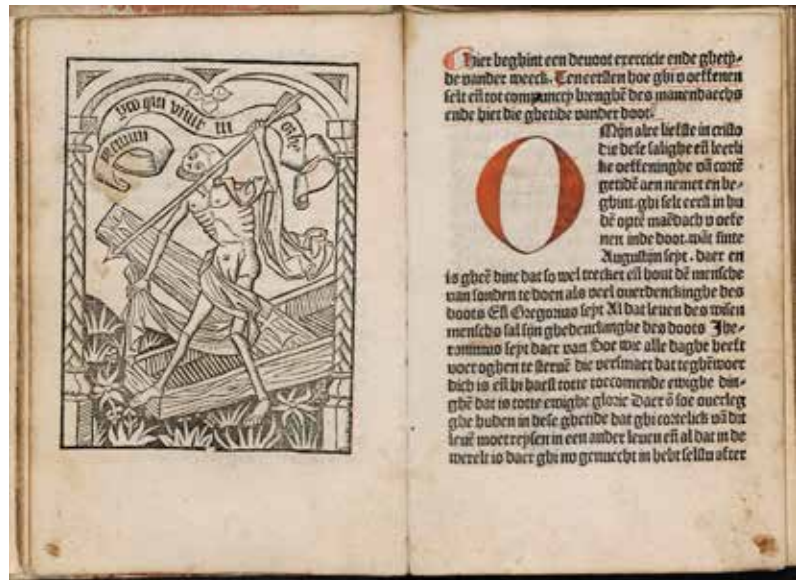 Hier beghint een deuoot exercicie ende ghetij⸗
de vander weeck. Ten eersten hoe ghi v oeffenen
selt eñ tot compunctij brenghẽ des manendaechs
ende hiet die ghetide vander doot.
O Mijn alre liefste in cristo
die dese salighe eñ leerli
ke oeffeninghe vã cortẽ
getidẽ aen nemet en be⸗
ghint. ghi selt eerst in hu
dẽ optẽ maẽdach v oefe
nen inde doot. wãt sinte
Augustijn seyt. daer en
is gheẽ dinc dat so wel trecket eñ hout dẽ mensche
van sonden te doen als veel ouerdenckinghe des
doots Eñ Gregorius seyt Al dat leuen des wisen
menschs sal sijn ghedenckinghe des doots Ihe⸗
ronimus seyt daer van Soe wie alle daghe heeft
voer oghen te steruẽ die versmaet dat teghẽwoer
dich is eñ hi haest totte toecomende ewighe din⸗
ghẽ dat is totte ewighe glorie Daer õ soe ouerleg
ghe huden in dese ghetide dat ghi cortelick vã dit
leuẽ moet reysen in een ander leuen eñ al dat in de
werelt is daer ghi nv genuecht in hebt selstu after